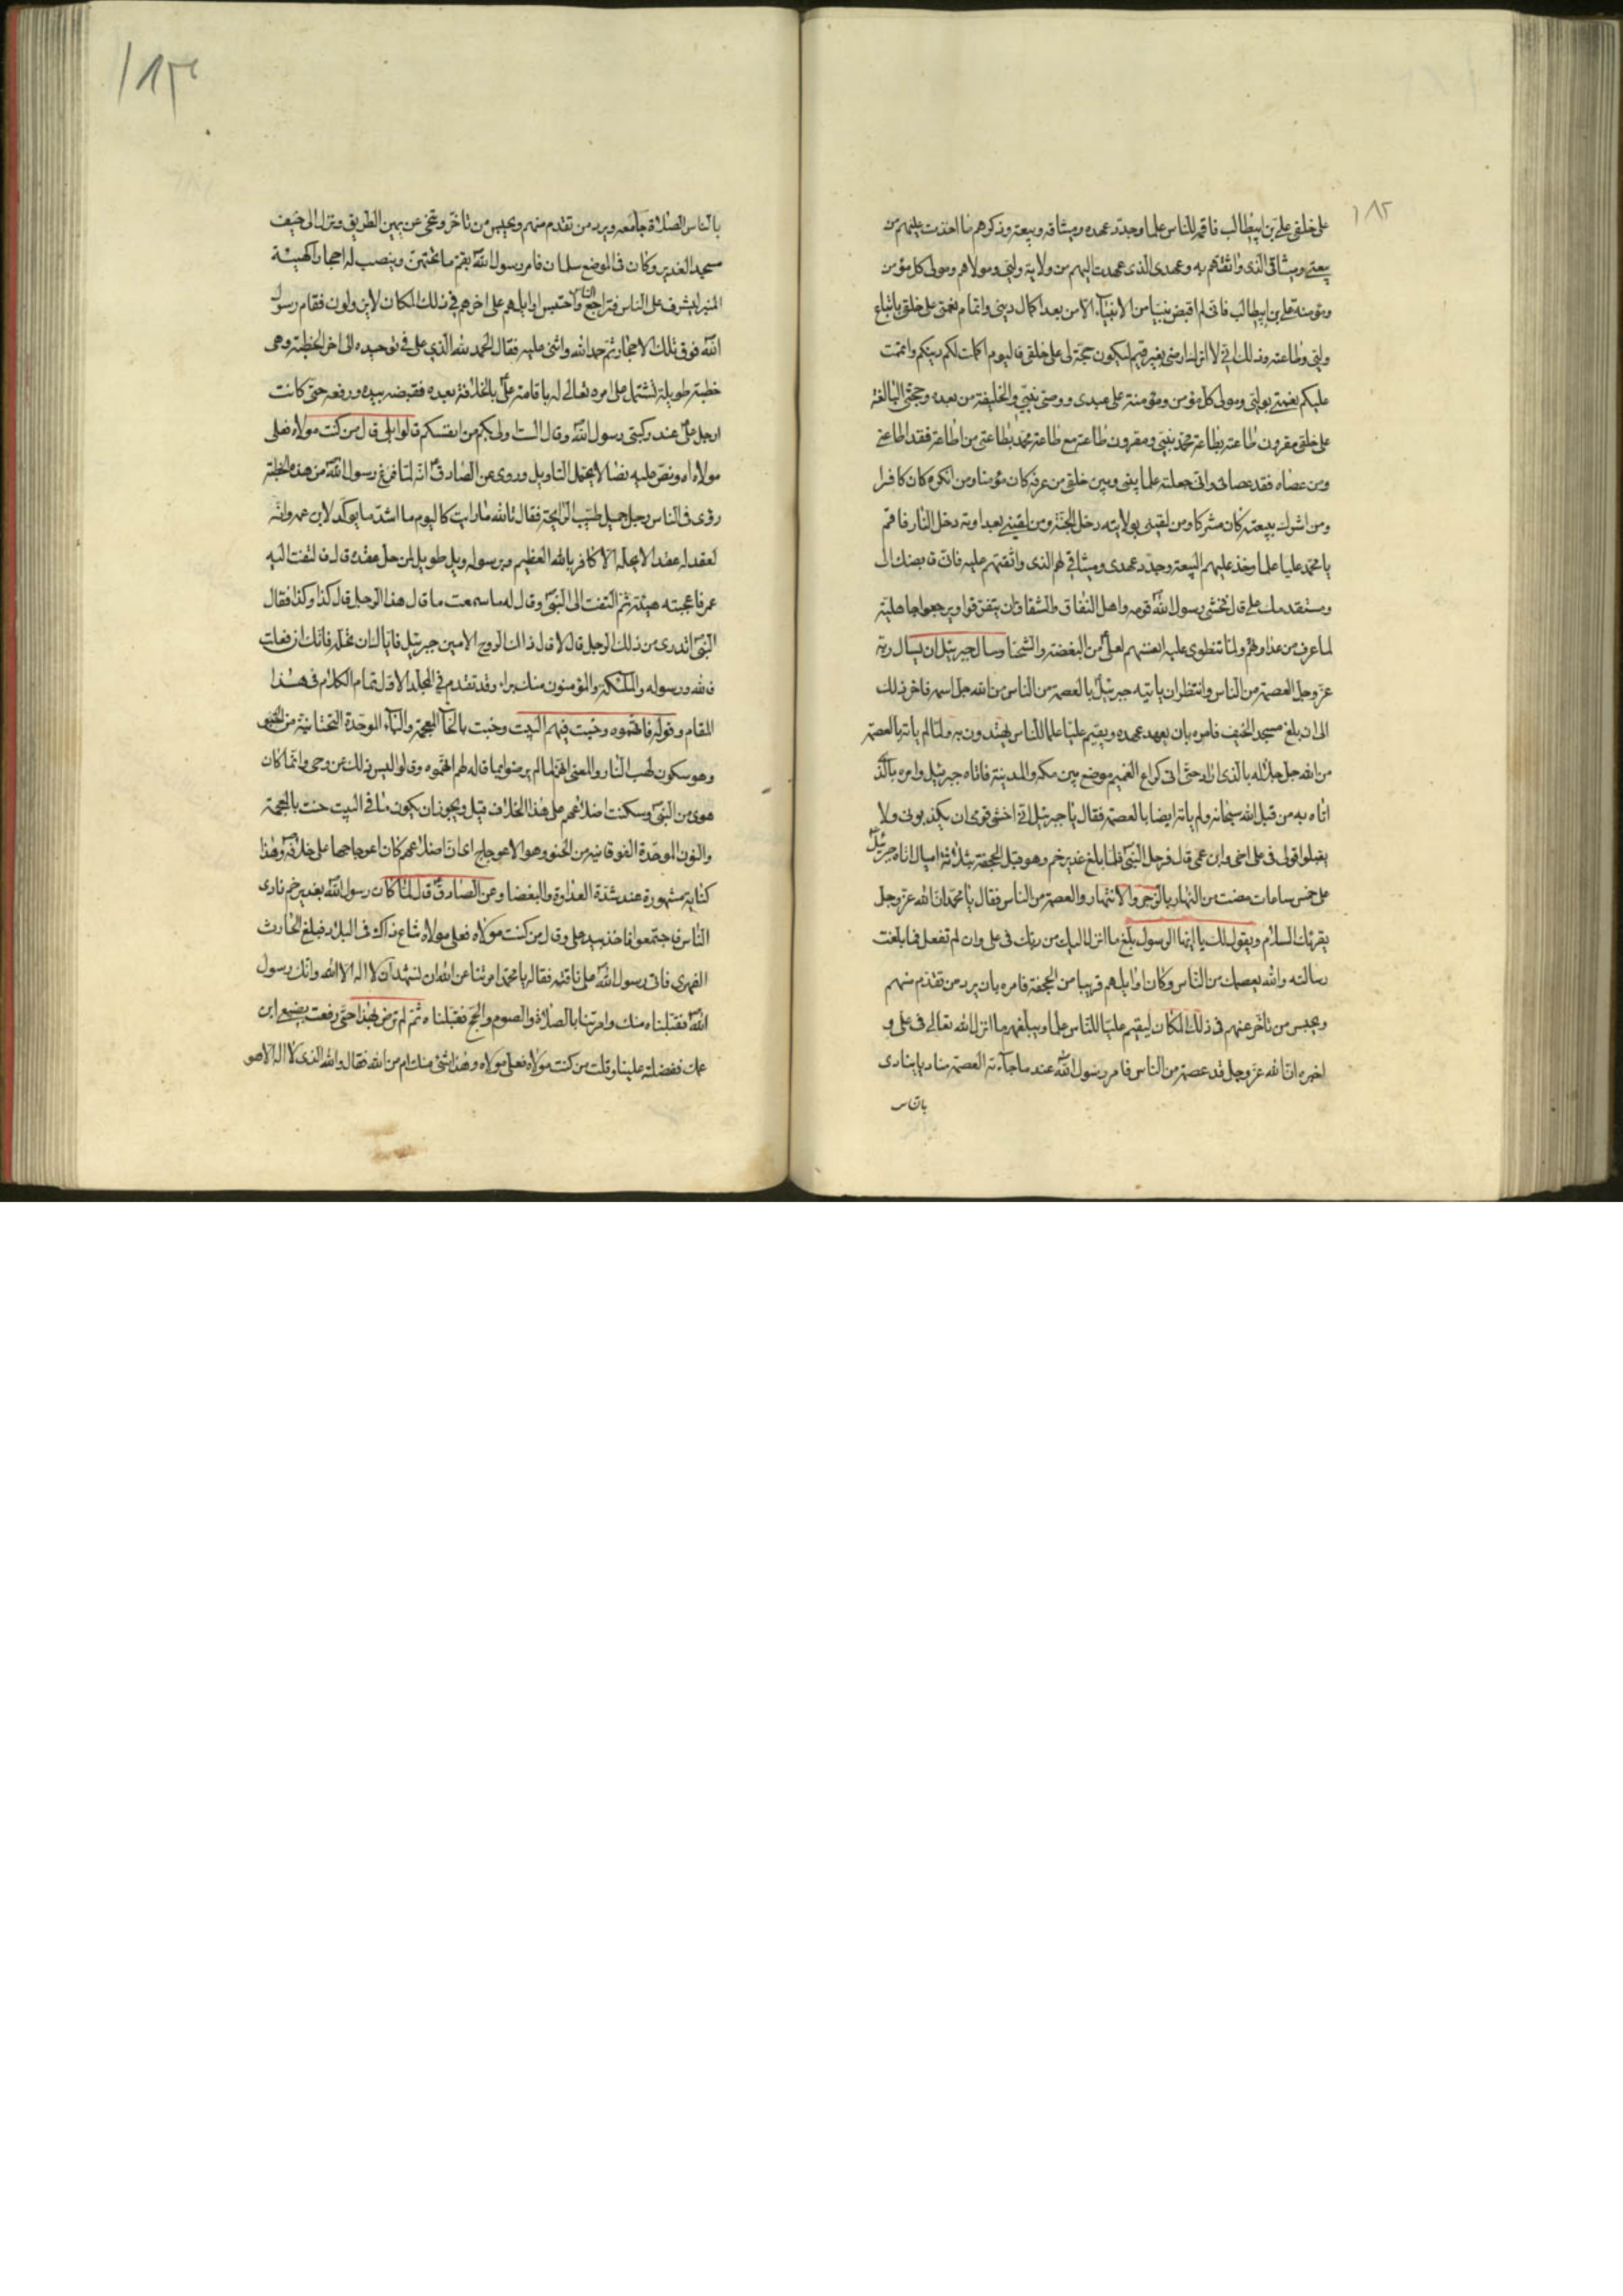 ١٨٢
على خلقى على بن ابيطالب فاقمه للناس علما وجدد عهده وميثاقه وبيعته وذكرهم ما اخذت عليهم من
بيعتى وميثاقى الذى واثقتهم به وعهدى الذى عهدت اليهم من ولاية وليى ومولاهم ومولى كل مؤمن
ومؤمنة على بن ابيطالب فانى لم اقبض نبيا من الانبياء الا من بعد اكمال دينى واتمام نعمتى على خلقى باتباع
وليى وطاعته وذلك انى لا اترك ارضى بغير قيم ليكون حجة لى على خلقى فاليوم اكملت لكم دينكم واتممت
عليكم نعمتى بوليى ومولى كل مؤمن ومؤمنة على عبدى ووصى نبيى والخليفة من بعده وحجتى البالغة
على خلقى مقرون طاعته بطاعة محمد نبيى ومقرون طاعته مع طاعة محمد بطاعتى من اطاعه فقد اطاعنى
ومن عصاه فقد عصانى وانى جعلته علما بينى وبين خلقى من عرفه كان مؤمنا ومن انكره كان كافرا
ومن اشرك ببيعته كان مشركا ومن لقينى بولايته دخل الجنة ومن لقينى بعداوته دخل النار فاقم
يا محمد عليا علما وخذ عليهم البيعة وجدد عهدى وميثاقى لهم الذى واثقتهم عليه فانى قابضك الى
ومستقدمك على قال فخشى رسول الله قومه واهل النفاق والشقاق ان يتفرقوا ويرجعوا جاهلية
لما عرف من عداوتهم ولما تنطوى عليه انفسهم لعلى من البغضة والشحنا وسال جبرئيل ان يسال ربه
عز وجل العصمة من الناس وانتظر ان ياتيه جبرئيل بالعصمة من الناس من الله جل اسمه فاخر ذلك
الى ان بلغ مسجد الخيف فامره بان يعهد عهده ويقيم عليا علما للناس يهتدون به ولما لم ياته بالعصمة
من الله جل جلاله بالذى اراد حتى اتى كراع الغميم موضع بين مكة والمدينة فاتاه جبرئيل وامره بالذى
اتاه به من قبل الله سبحانه ولم ياته ايضا بالعصمة فقال يا جبرئيل انى اخشى قومى ان يكذبونى ولا
يقبلوا قولى فى على اخى وابن عمى قال فرحل النبى فلما بلغ غدير خم وهو قبل الجحفة بثلاثة اميال اتاه جبرئيل
على خمس ساعات مضت من النهار بالزجر والانتهار والعصمة من الناس فقال يا محمد ان الله عز وجل
يقرئك السلام ويقول لك يا ايها الرسول بلغ ما انزل اليك من ربك فى على وان لم تفعل فما بلغت
رسالته والله يعصمك من الناس وكان اوايلهم قريبا من الجحفة فامره بان يرد من تقدم منهم
ويحبس من تاخر عنهم فى ذلك المكان ليقيم عليا للناس علما ويبلغهم ما انزل الله تعالى فى على و
اخبره ان الله عز وجل قد عصمه من الناس فامر رسول الله عند ما جاءته العصمة مناديا ينادى
بالناس
١٨٣
بالناس الصلاة جامعه ويرد من تقدم منهم ويحبس من تاخر وتنحى عن يمين الطريق ونزل الى جنب
مسجد الغدير وكان فى الموضع سلمات فامر رسول الله بقم ما تحتهن وينصب له احجار كهيئة
المنبر ليشرف على الناس فتراجع الناس واحتبس اوايلهم على اخرهم فى ذلك المكان لا يزولون فقام رسول
الله فوق تلك الاحجار ثم حمد الله واثنى عليه فقال الحمد لله الذى على فى توحيده الى اخر الخطبة وهى
خطبة طويلة تشتمل على امره تعالى له باقامة على بالخلافة بعده فقبضه بيده ورفعه حتى كانت
ارجل على عند ركبتى رسول الله وقال الست اولى بكم من انفسكم قالوا بلى قال من كنت مولاه فعلى
مولاه اه ونص عليه نصا لا يحتمل التاويل وروى عن الصادق انه لما فرغ رسول الله من هذه الخطبة
رؤى فى الناس رجل جميل طيب الرايحة فقال تالله ما رايت كاليوم ما اشد ما يؤكد لابن عمه وانه
لعقد له عقدا لا يحله الا كافر بالله العظيم وبرسوله ويل طويل لمن حل عقده قال فالتفت اليه
عمر فاعجبته هيئته ثم التفت الى النبى وقال له اما سمعت ما قال هذا الرجل قال كذا وكذا فقال
النبى اتدرى من ذلك الرجل قال لا قال ذاك الروح الامين جبرئيل فاياك ان تحله فانك ان فعلت
فالله ورسوله والملئكة والمؤمنون منك براء وقد تقدم فى المجلد الاول تمام الكلام فى هذا
المقام وقوله فاتهموه وخبت فيهم البيت وخبت بالخاء المعجمة والباء الموحدة التحتانية من الخبو
وهو سكون لهب النار والمعنى انهم لما لم يرضوا بما قاله لهم اتهموه وقالوا ليس ذلك عن وحى وانما كان
هوى من النبى وسكنت اضلاعهم على هذا الخلاف قيل ويجوز ان يكون ما فى البيت حنت بالمعجمة
والنون الموحدة الفوقانية من الحنو وهو الاعوجاج اى ان اضلاعهم كان اعوجاجها على خلافه وهذا
كناية مشهورة عند شدة العداوة والبغضا وعن الصادق قال لما كان رسول الله بغدير خم نادى
الناس فاجتمعوا فاخذ بيد على وقال من كنت مولاه فعلى مولاه شاع ذلك فى البلاد فبلغ الحارث
الفهرى فاتى رسول الله على ناقته فقال يا محمد امرتنا عن الله ان نشهد ان لا اله الا الله وانك رسول
الله فقبلناه منك وامرتنا بالصلاة والصوم والحج فقبلناه ثم لم ترض بهذا حتى رفعت بضبع ابن
عمك ففضلته علينا وقلت من كنت مولاه فعلى مولاه وهذا شئ منك ام من الله فقال والله الذى لا اله الا هو